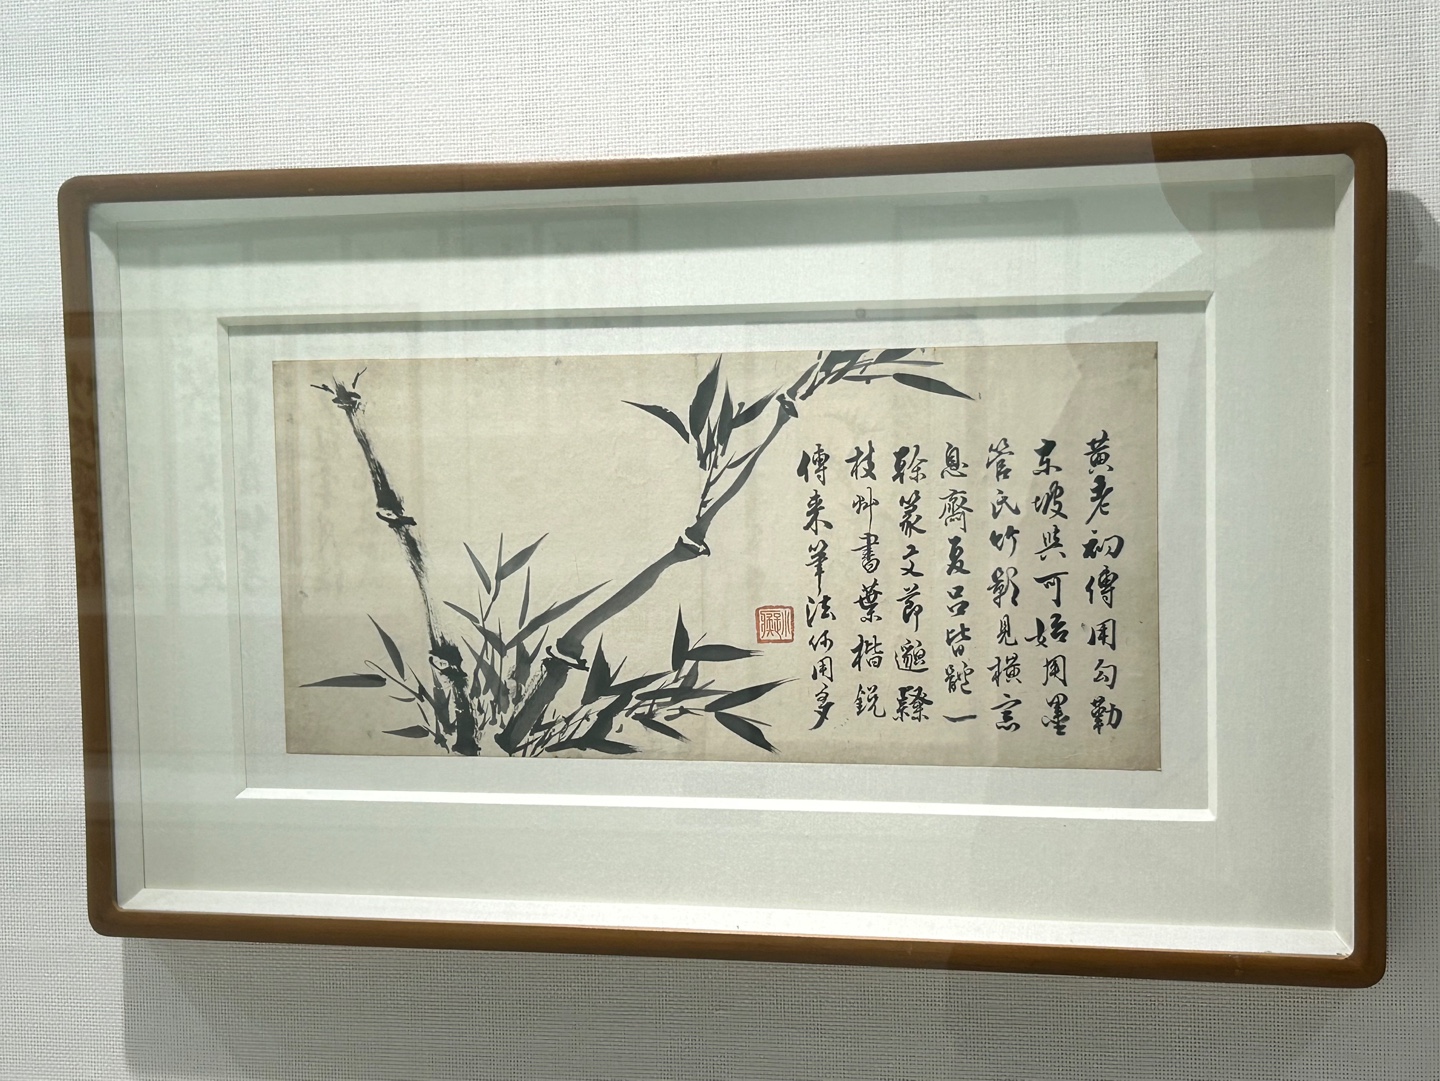 黃老初傳用勾勒
東坡與可始用墨
管氏竹影見橫窓
息齋夏呂皆體一
幹篆文節邈隸
枝艸書葉楷銳
傳來筆法何用多